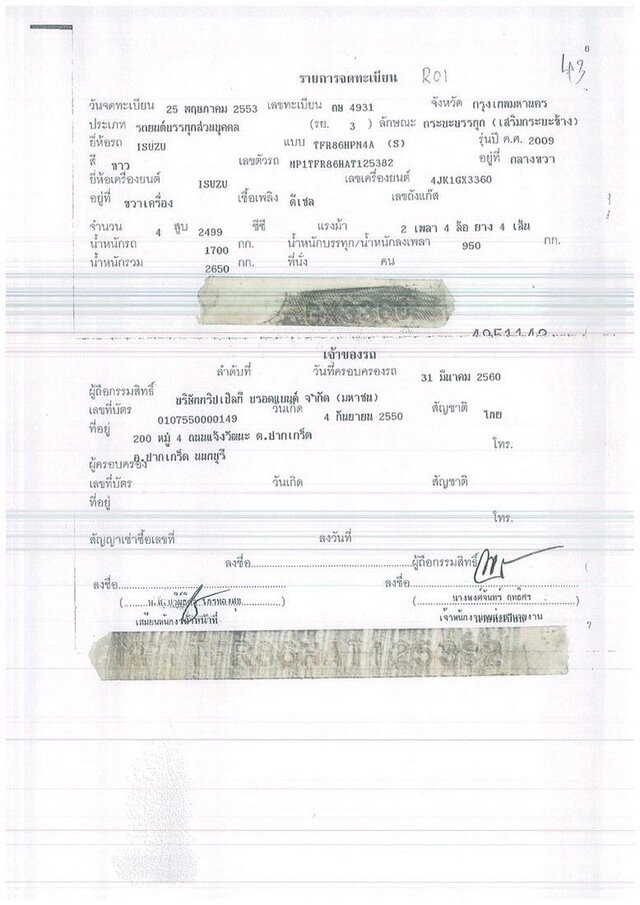 6
43
รายการจดทะเบียน R01
วันจดทะเบียน 25 พฤษภาคม 2553 เลขทะเบียน ฌษ 4931 จังหวัด กรุงเทพมหานคร
ประเภท รถยนต์บรรทุกส่วนบุคคล (รย. 3 ) ลักษณะ กระบะบรรทุก (เสริมกระบะข้าง)
ยี่ห้อรถ ISUZU แบบ TFR86HPM4A (S) รุ่นปี ค.ศ. 2009
สี ขาว เลขตัวรถ MP1TFR86HAT125382 อยู่ที่ กลางขวา
ยี่ห้อเครื่องยนต์ ISUZU เลขเครื่องยนต์ 4JK1GX3360
อยู่ที่ ขวาเครื่อง เชื้อเพลิง ดีเซล เลขถังแก๊ส
จำนวน 4 สูบ 2499 ซีซี แรงม้า 2 เพลา 4 ล้อ ยาง 4 เส้น
น้ำหนักรถ 1700 กก. น้ำหนักบรรทุก/น้ำหนักลงเพลา 950 กก.
น้ำหนักรวม 2650 กก. ที่นั่ง คน
เจ้าของรถ
ลำดับที่ วันที่ครอบครองรถ 31 มีนาคม 2560
ผู้ถือกรรมสิทธิ์ บริษัททริปเปิลที บรอดแบนด์ จำกัด (มหาชน)
เลขที่บัตร 0107550000149 วันเกิด 4 กันยายน 2550 สัญชาติ ไทย
ที่อยู่ 200 หมู่ 4 ถนนแจ้งวัฒนะ ต.ปากเกร็ด
อ.ปากเกร็ด นนทบุรี โทร.
ผู้ครอบครอง
เลขที่บัตร วันเกิด สัญชาติ
ที่อยู่
โทร.
สัญญาเช่าซื้อเลขที่ ลงวันที่
ลงชื่อ ผู้ถือกรรมสิทธิ์
ลงชื่อ ลงชื่อ
7